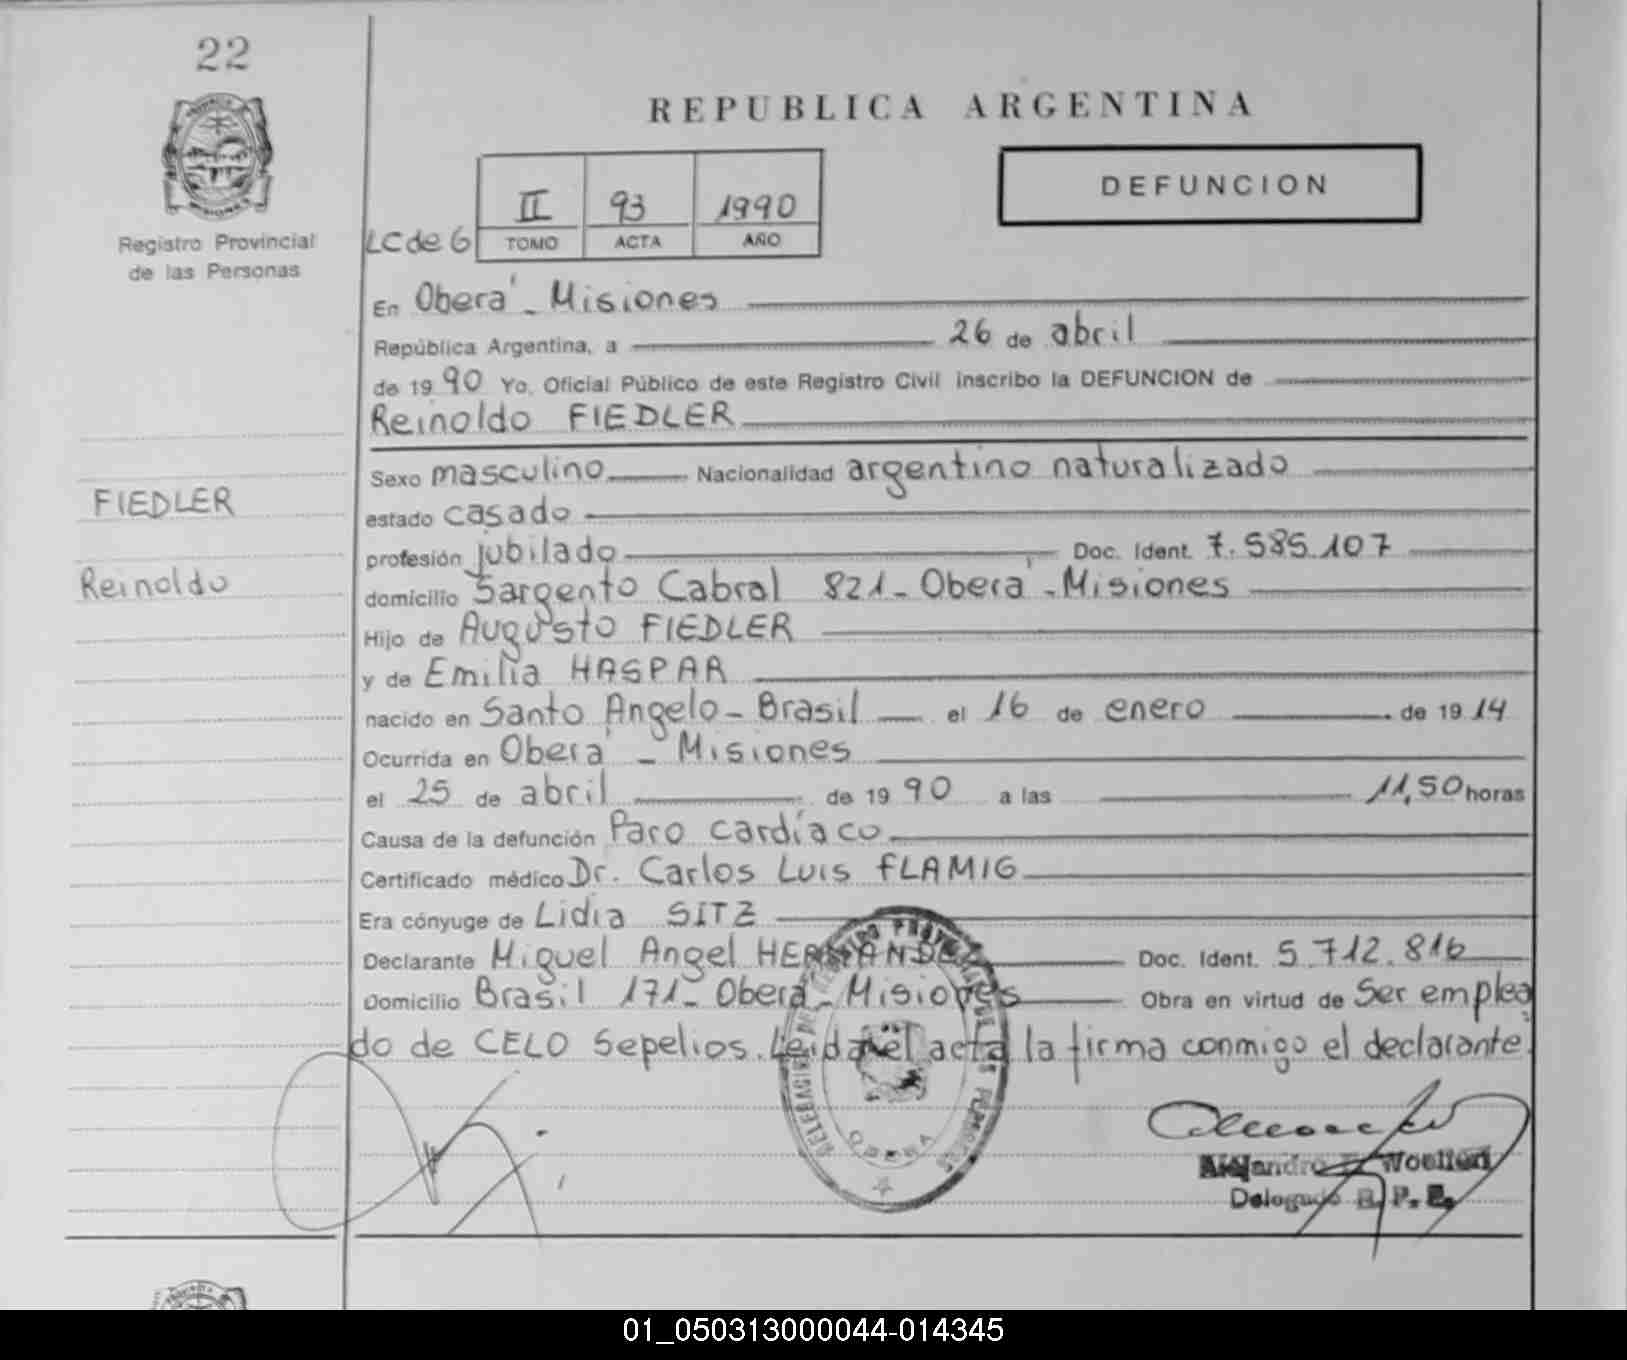 22
REPUBLICA ARGENTINA
DEFUNCION
Registro Provincial
de las Personas
LC de 6
II 93 1990
TOMO ACTA AÑO
En Oberá - Misiones
República Argentina, a 26 de abril
de 1990 Yo, Oficial Público de este Registro Civil inscribo la DEFUNCION de
Reinoldo FIEDLER
Sexo masculino Nacionalidad argentino naturalizado
FIEDLER
estado casado
profesión jubilado Doc. Ident. 7.585.107
Reinoldo
domicilio Sargento Cabral 821 - Oberá - Misiones
Hijo de Augusto FIEDLER
y de Emilia HASPAR
nacido en Santo Angelo - Brasil el 16 de enero de 1914
Ocurrida en Oberá - Misiones
el 25 de abril de 1990 a las 11,50 horas
Causa de la defunción Paro cardíaco
Certificado médico Dr. Carlos Luis FLAMIG
Era cónyuge de Lidia SITZ
Declarante Miguel Angel HERNANDEZ Doc. Ident. 5.712.816
Domicilio Brasil 171 - Oberá - Misiones Obra en virtud de Ser emplea
do de CELO Sepelios. Leida el acta la firma conmigo el declarante.
OBERA
Alejandro
Delegado R. P. P.
01_050313000044-014345